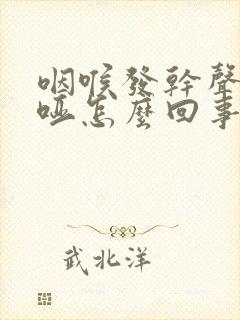 咽喉發幹聲
啞怎麼回事
武北洋